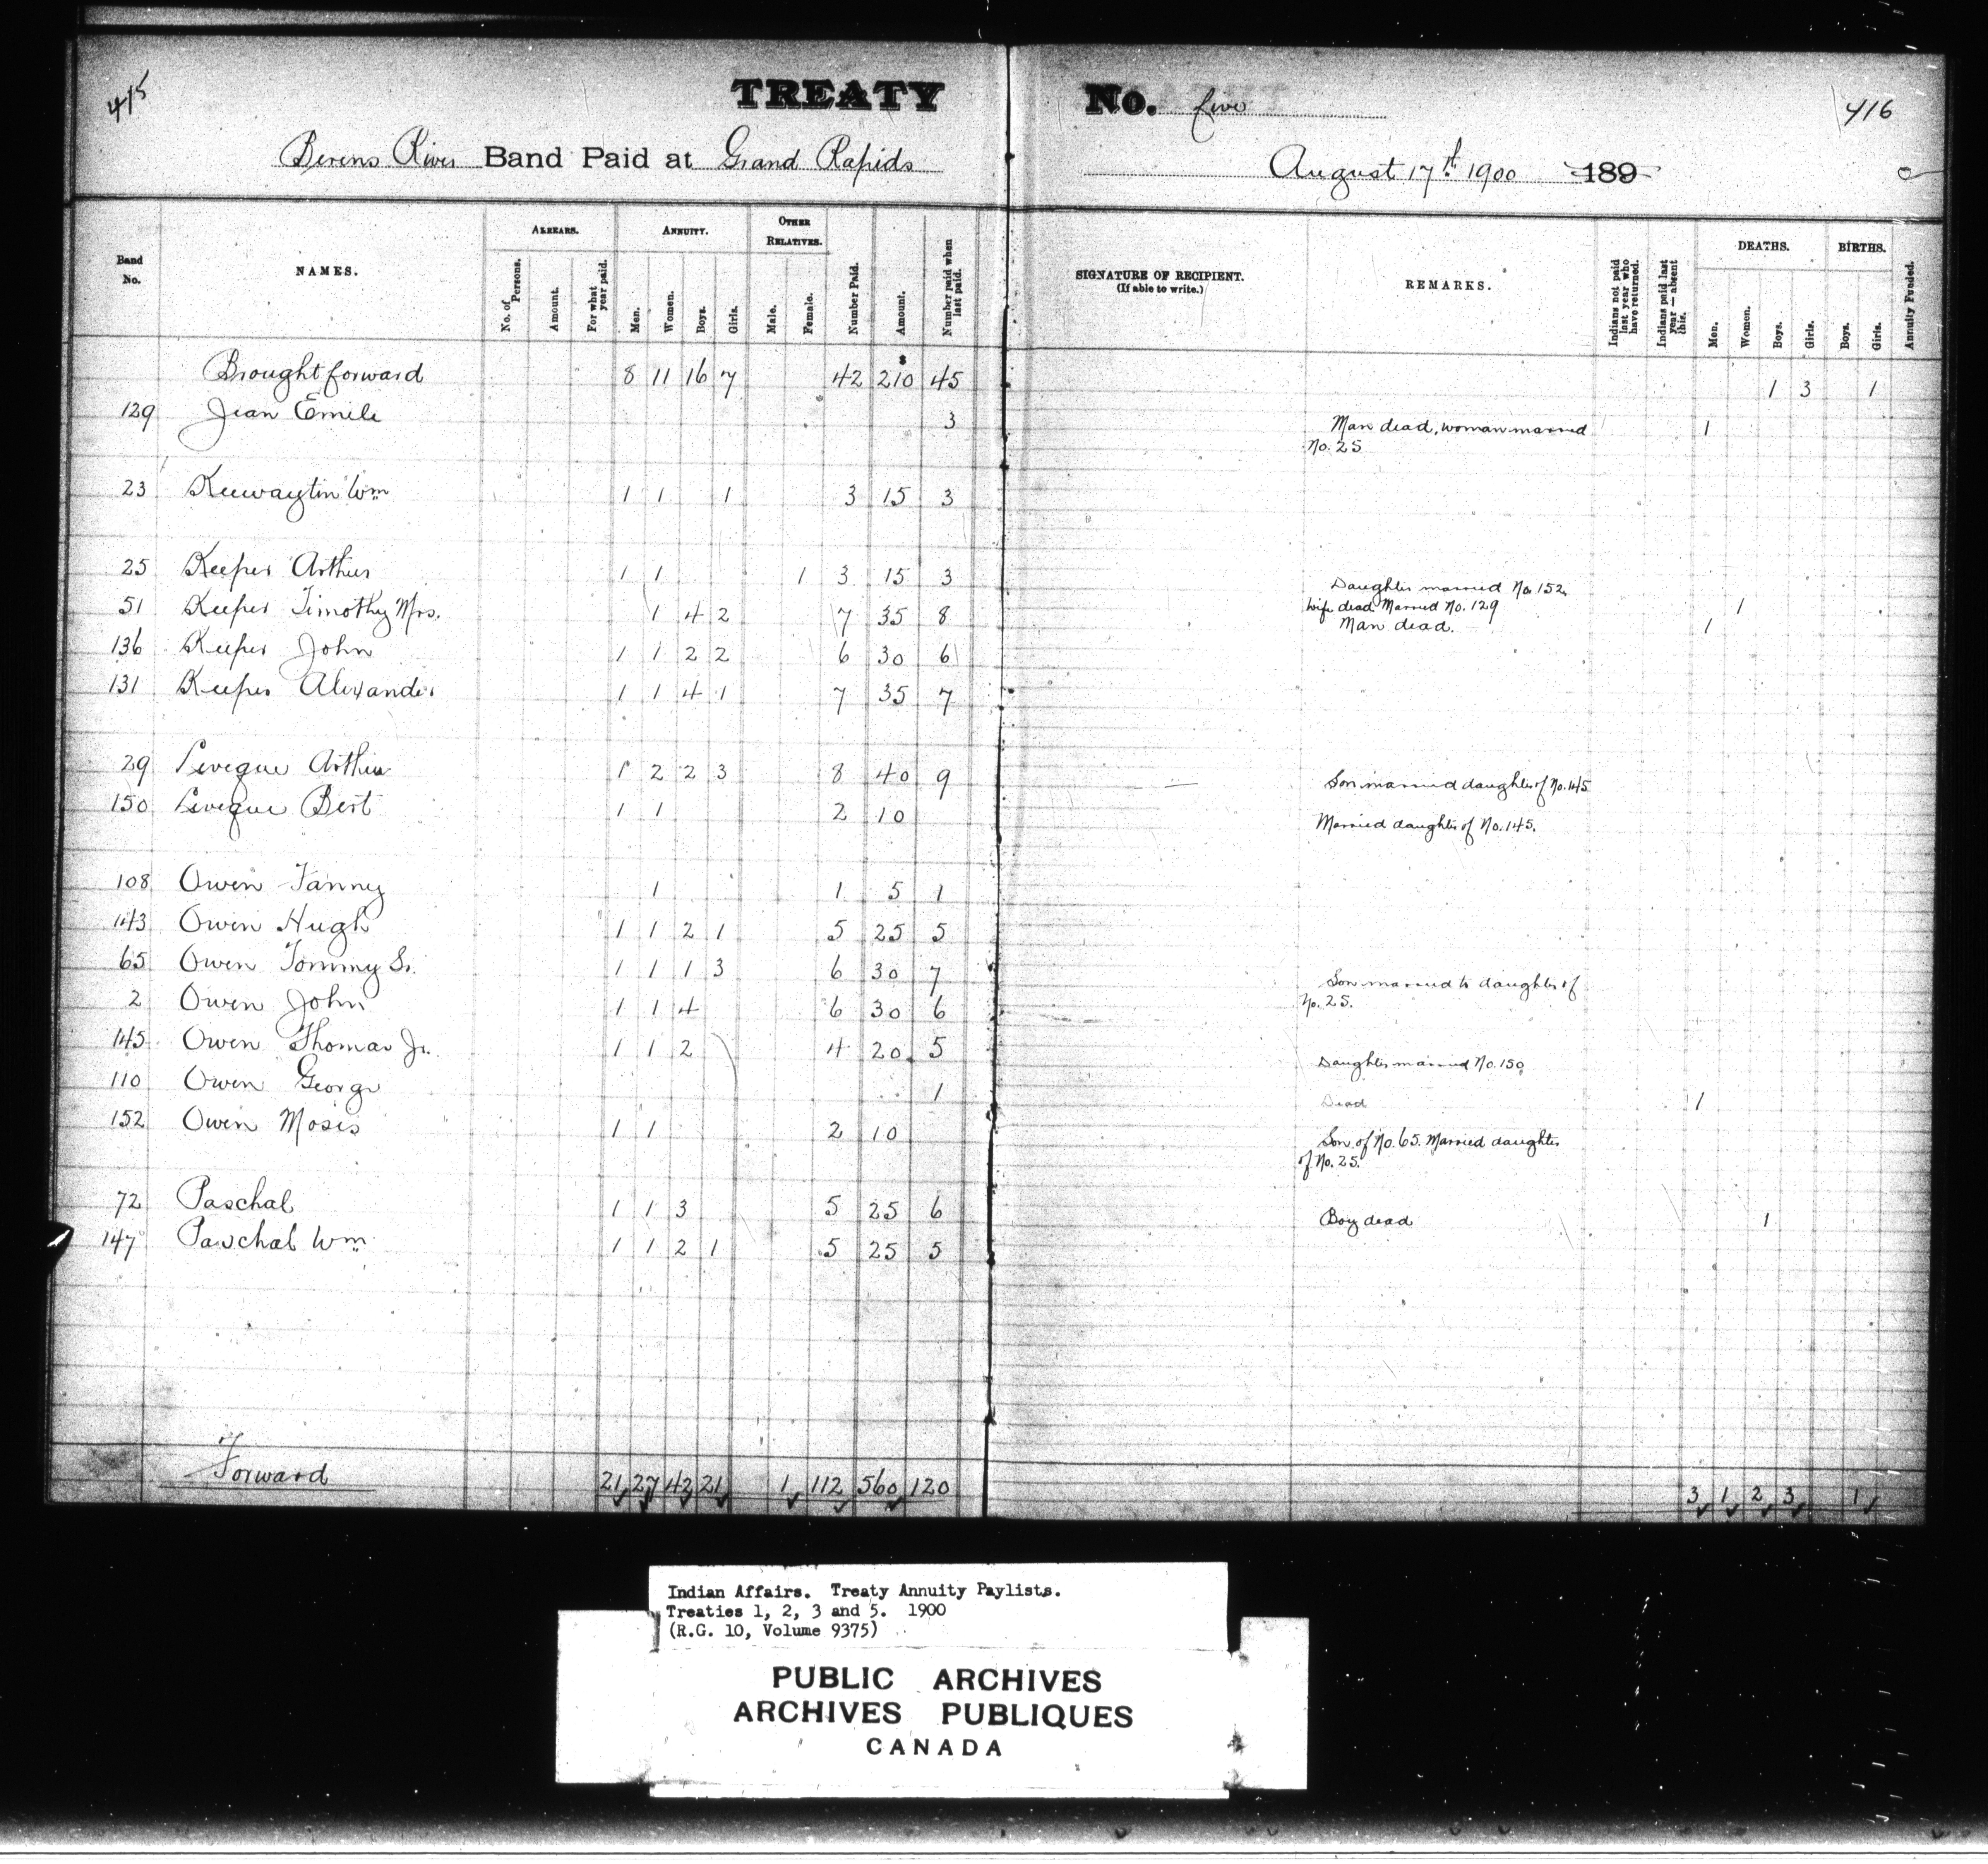 415
TREATY No. five
416
Berens River Band Paid at Grand Rapids August 17th 1900 189
Band No.
NAMES.
ARREARS.
No. of Persons.
Amount.
For what year paid.
ANNUITY.
Men.
Women.
Boys.
Girls.
OTHER RELATIVES.
Male.
Female.
Number Paid.
Amount.
Number paid when last paid.
SIGNATURE OF RECIPIENT.
(If able to write.)
REMARKS.
Indians not paid last year who have returned.
Indians paid last year — absent this.
DEATHS.
Men.
Women.
Boys.
Girls.
BIRTHS.
Boys.
Girls.
Annuity Funded.
$
Brought forward 8 11 16 7 42 210 45 1 3 1
129 Jean Emile 3 Man dead, woman married 1
No. 25
23 Keewaytin Wm 1 1 1 3 15 3
25 Keeper Arthur 1 1 1 3 15 3 Daughter married No. 152,
wife dead Married No. 129 1
51 Keeper Timothy Mrs. 1 4 2 7 35 8 Man dead. 1
136 Keeper John 1 1 2 2 6 30 6
131 Keeper Alexander 1 1 4 1 7 35 7
29 Leveque Arthur 1 2 2 3 8 40 9 Son married daughter of No. 145
150 Leveque Bert 1 1 2 10 Married daughter of No. 145.
108 Owen Fanny 1 1 5 1
143 Owen Hugh 1 1 2 1 5 25 5
65 Owen Tommy Sr. 1 1 1 3 6 30 7 Son married to daughter of
No. 25.
2 Owen John 1 1 4 6 30 6
145 Owen Thomas Jr. 1 1 2 4 20 5 Daughter married No. 150
110 Owen George 1 Dead 1
152 Owen Moses 1 1 2 10 Son of No. 65. Married daughter
of No. 25.
72 Paschal 1 1 3 5 25 6 Boy dead 1
147 Paschal Wm 1 1 2 1 5 25 5
Forward 21 27 42 21 1 112 560 120 3 1 2 3 1
Indian Affairs. Treaty Annuity Paylists.
Treaties 1, 2, 3 and 5. 1900
(R.G. 10, Volume 9375)
PUBLIC ARCHIVES
ARCHIVES PUBLIQUES
CANADA